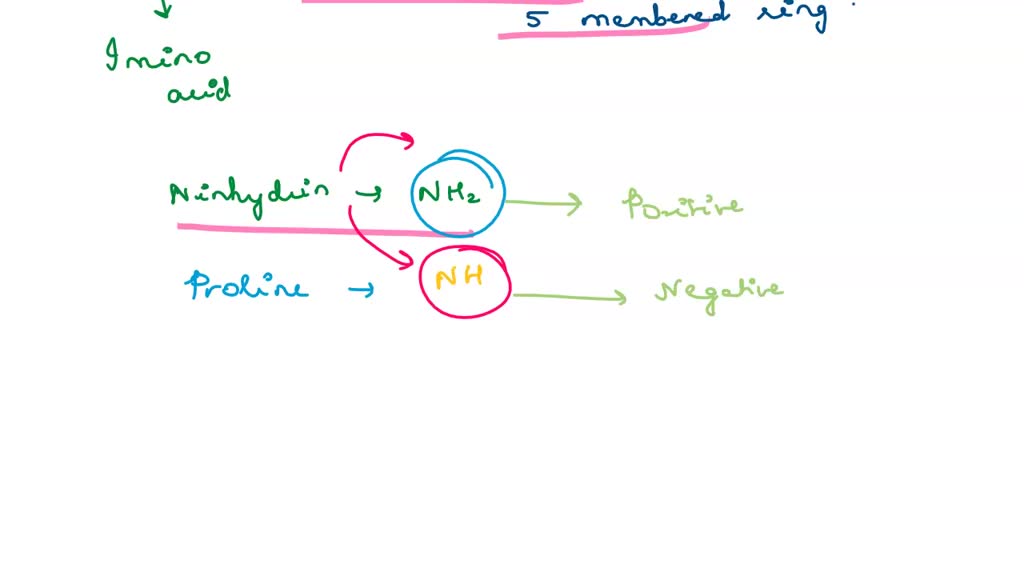 5 membered ring.
Imino
acid
Ninhydrin → NH2 → Positive
Proline → NH → Negative